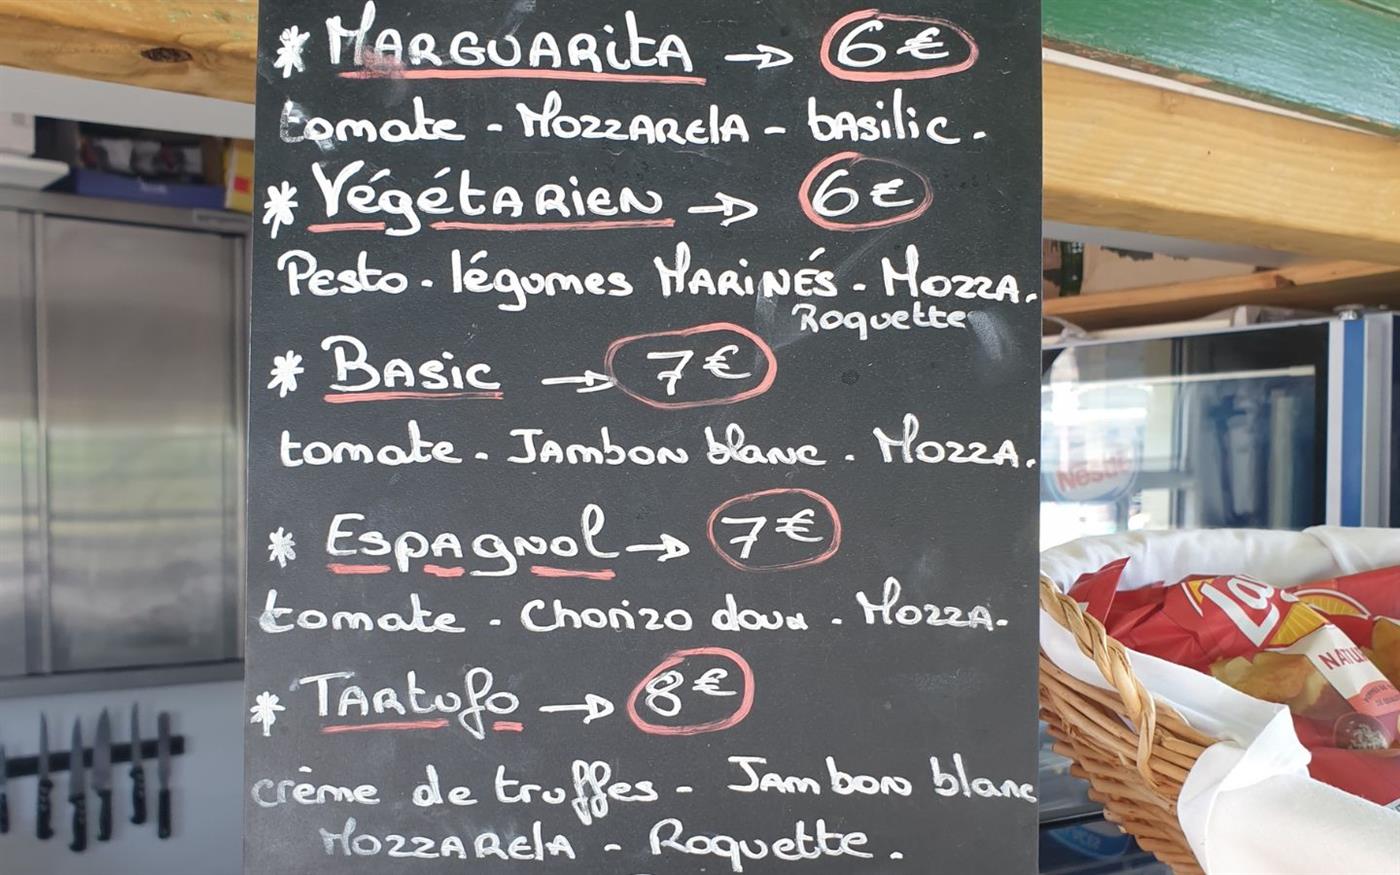 * MARGUARITA → 6€
tomate - MOZZARElA - bASilic.
* VégétARIEN → 6€
Pesto - légumes MARiNÉS - MozzA.
Roquette
* BASic → 7€
tomate - JAMboN blANc - MozzA.
* Espagnol → 7€
tomate - Chorizo doux - MozzA.
* TARtufo → 8€
crème de truffes - JAMboN blANc
MOZZARElA - Roquette.
Nestlé
Lay
NATU